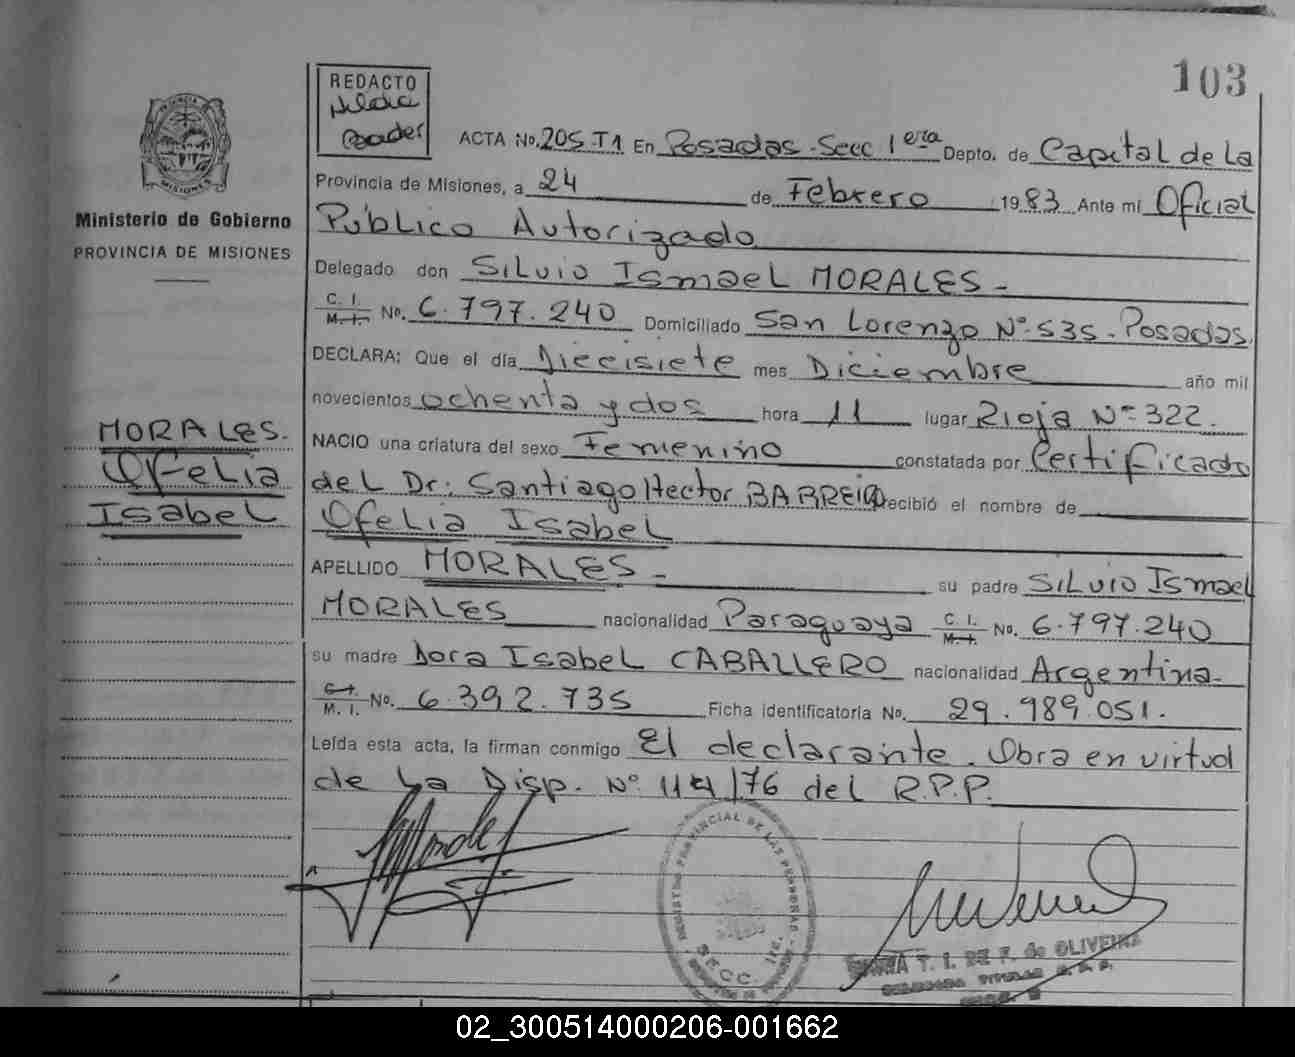 103
REDACTO
Nilda
Bader
PROVINCIA DE
MISIONES
Ministerio de Gobierno
PROVINCIA DE MISIONES
MORALES.
Ofelia
Isabel
ACTA No. 205-T1 En Posadas-Secc 1era Depto. de Capital de La
Provincia de Misiones, a 24 de Febrero 1983 Ante mi Oficial
Público Autorizado
Delegado don Silvio Ismael MORALES-
C. I. M. I. No. 6.797.240 Domiciliado San Lorenzo Nº 535-Posadas.
DECLARA: Que el día Diecisiete mes Diciembre año mil
novecientos ochenta y dos hora 11 lugar Rioja Nº 322.
NACIO una criatura del sexo Femenino constatada por Certificado
del Dr: Santiago Hector BARREIRO recibió el nombre de
Ofelia Isabel
APELLIDO MORALES- su padre Silvio Ismael
MORALES nacionalidad Paraguaya C. I. M. I. No. 6.797.240
su madre Dora Isabel CABALLERO nacionalidad Argentina-
C. I. M. I. No. 6.392.735 Ficha identificatoria No. 29.989.051.
Leída esta acta, la firman conmigo El declarante. Obra en virtud
de La Disp. Nº 114/76 del R.P.P.
REGISTRO PROVINCIAL DE LAS PERSONAS
SECC. 1ra.
T. I. DE F. de OLIVEIRA
TITULAR
02_300514000206-001662